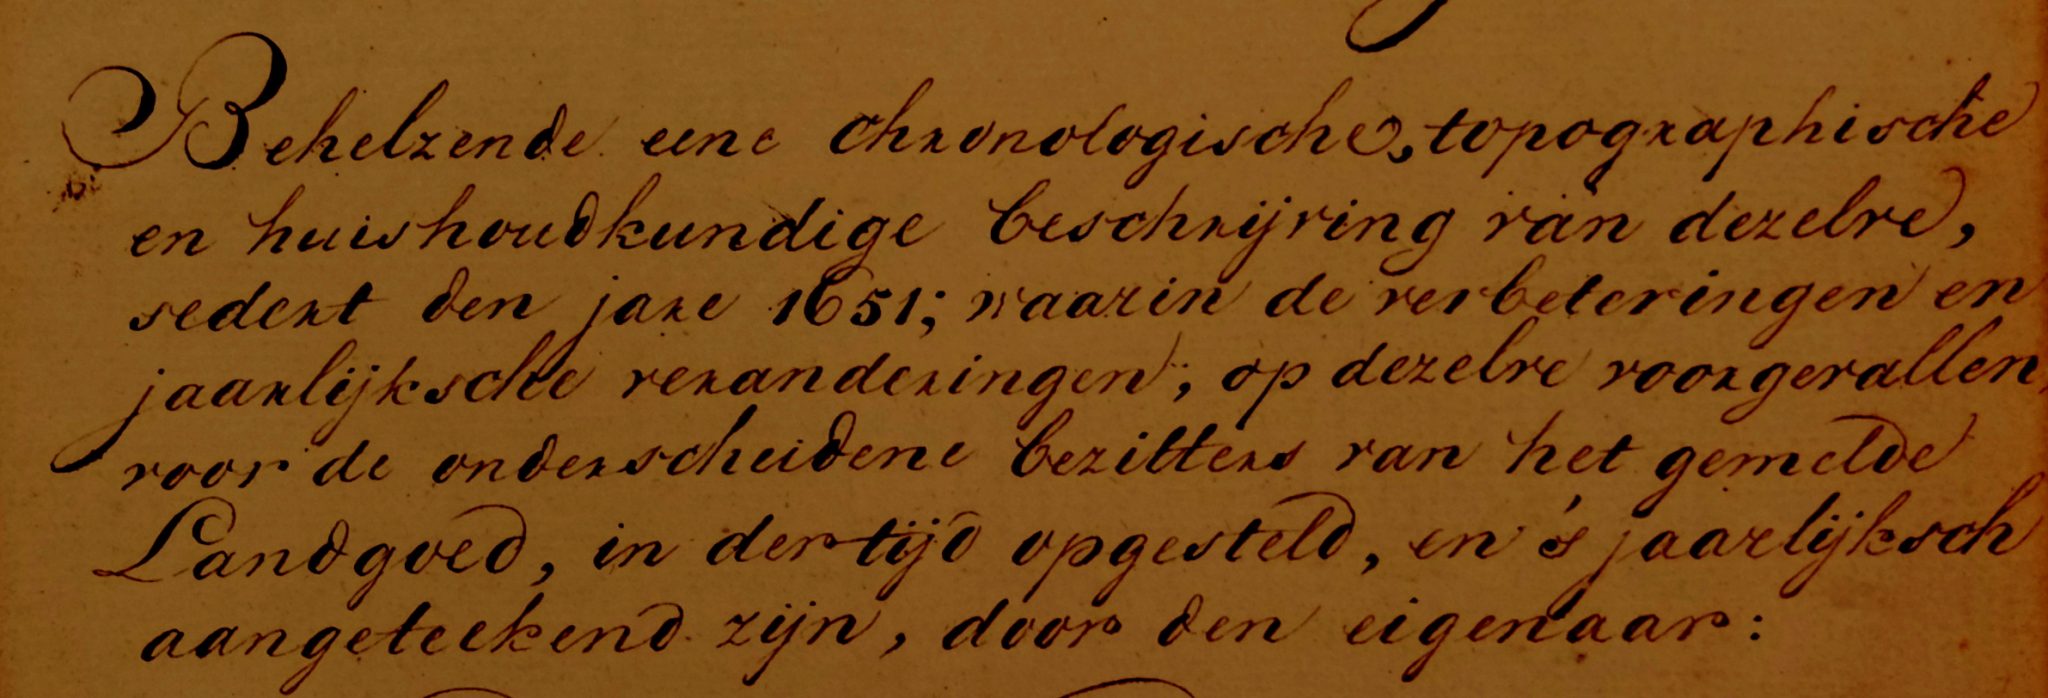 Behelzende eene chronologische, topographische
en huishoudkundige beschrijving van dezelve,
sedert den jare 1651; waarin de verbeteringen en
jaarlijksche veranderingen, op dezelve voorgevallen,
voor de onderscheidene bezitters van het gemelde
Landgoed, in der tijd opgesteld, en 's jaarlijksch
aangeteekend zijn, door den eigenaar: